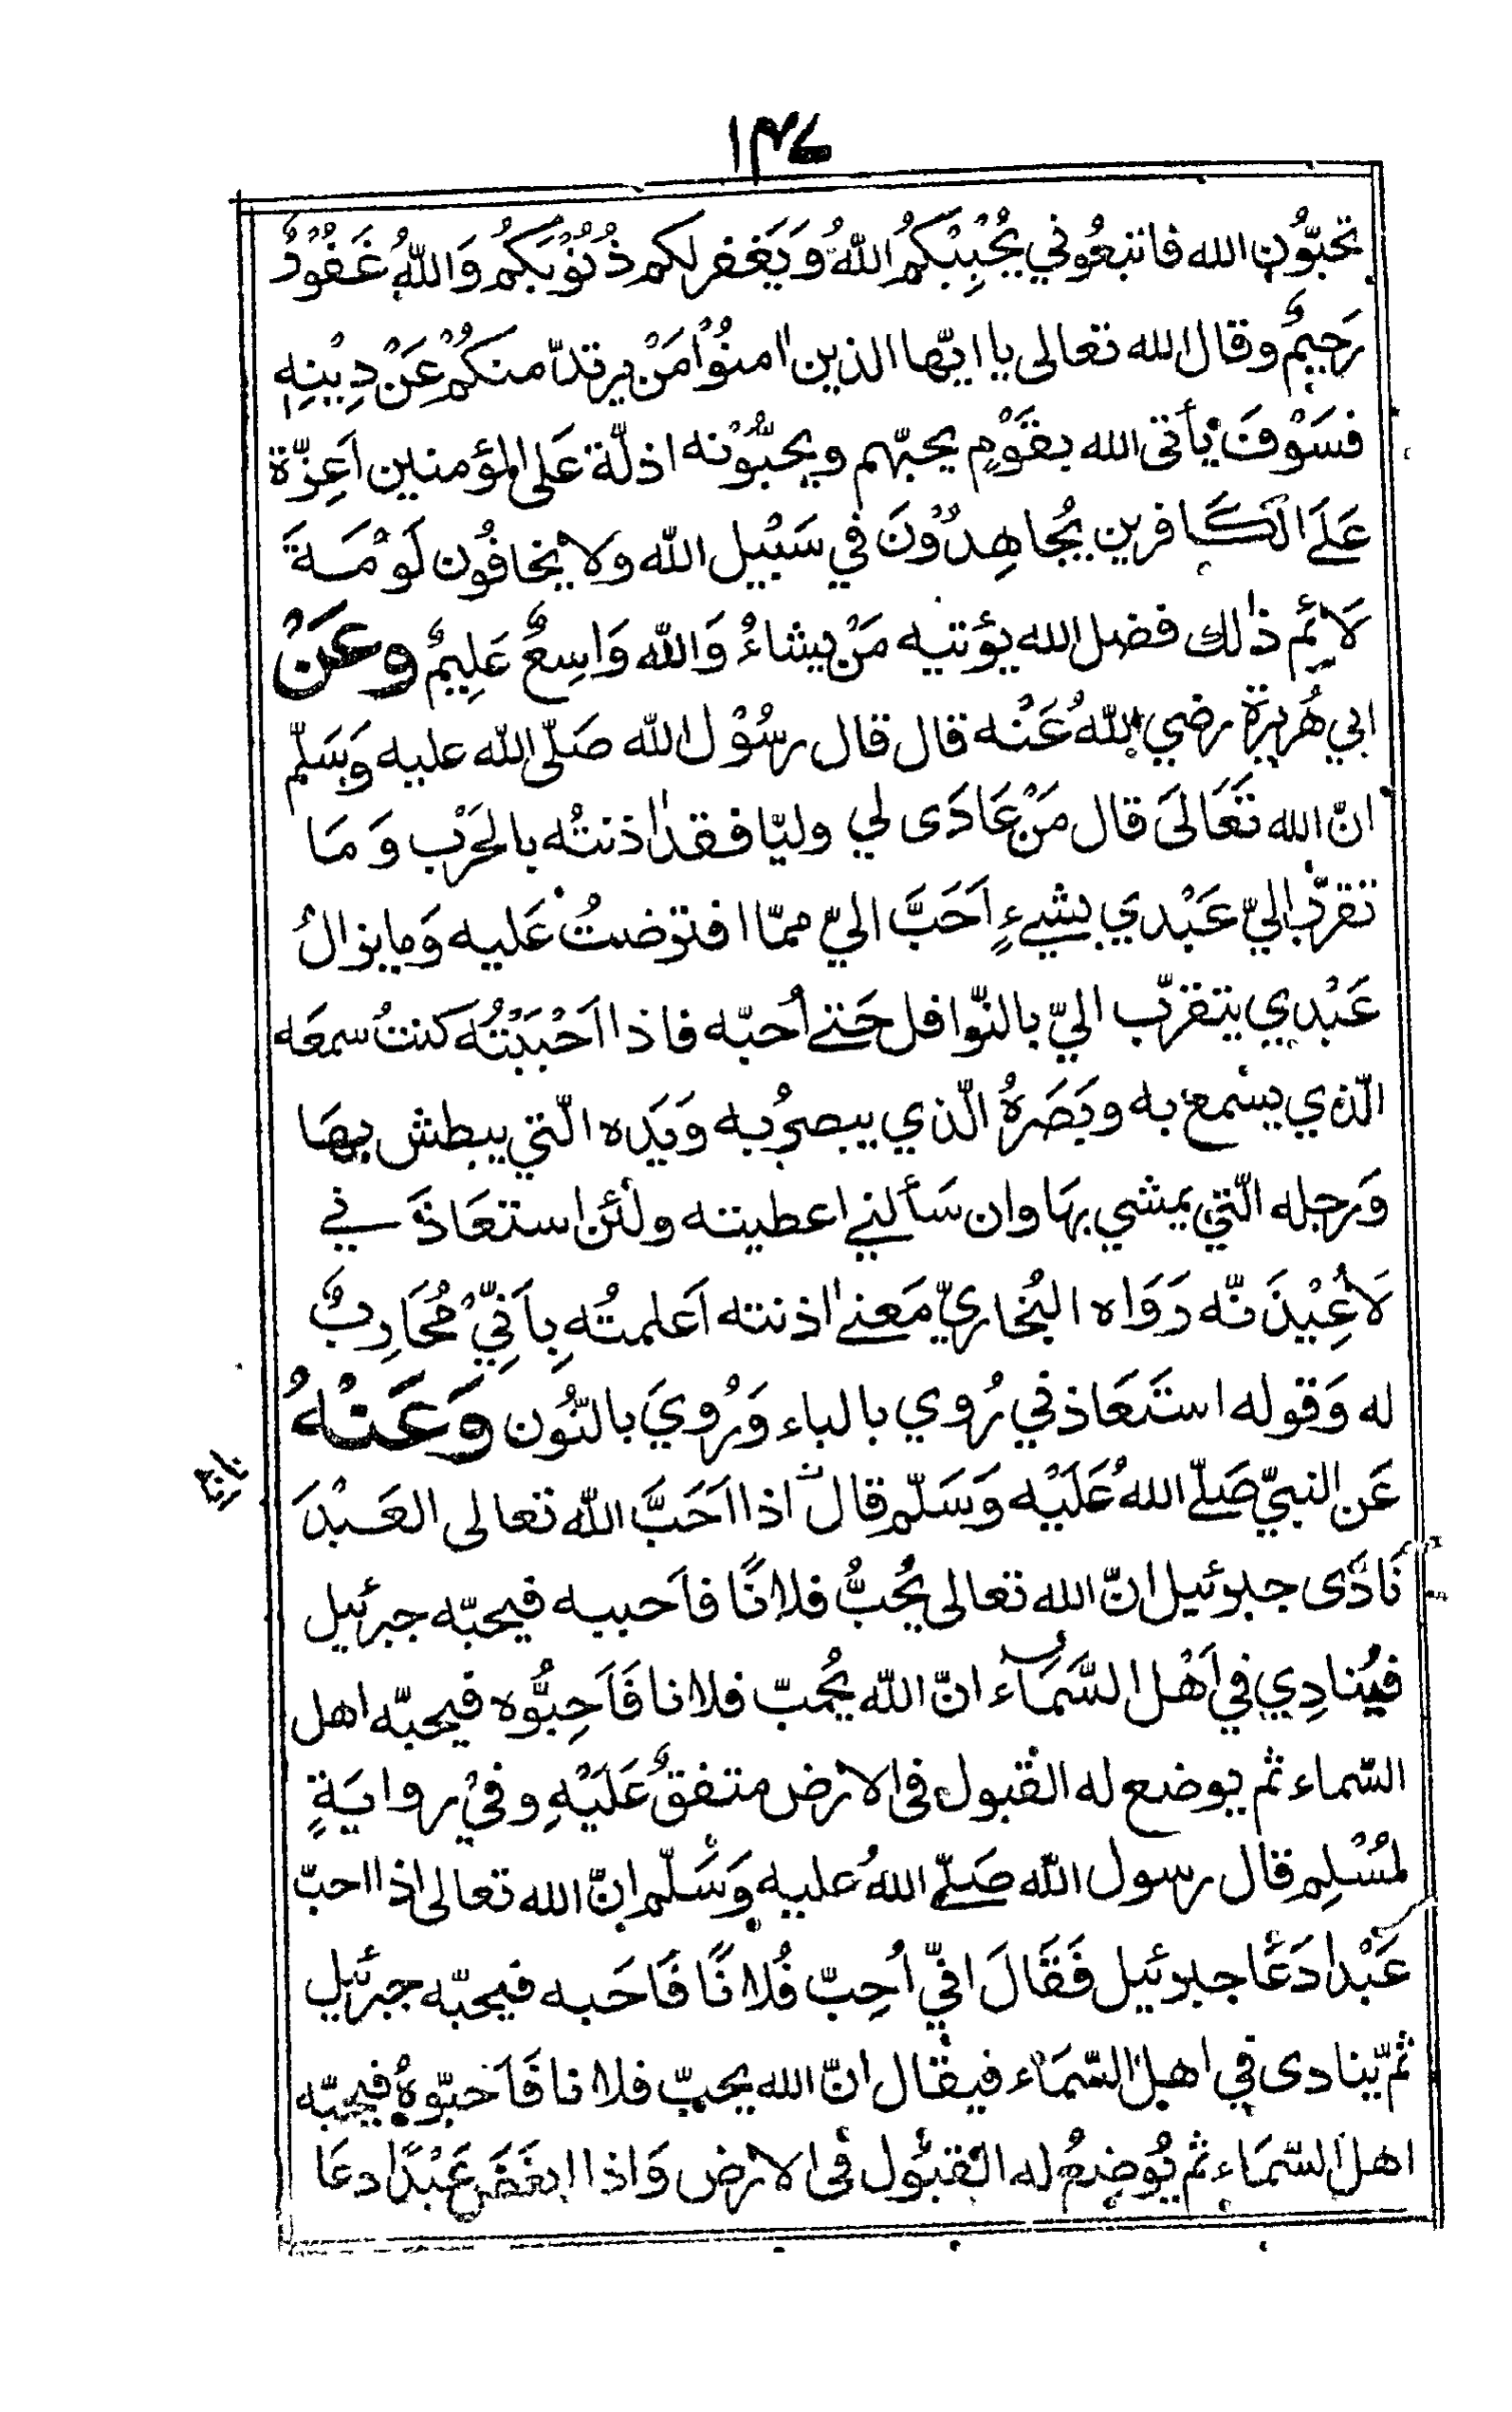 ١٣٧
تحبّون الله فاتبعُوني يُحْبِبْكمُ اللهُ وَيَغفر لكم ذُنُوْبَكمُ وَاللهُ غَفُوْرٌ
رَحيمٌ وقال الله تعالى يا ايّها الذين اٰمنوْا مَنْ يرتدّ منكُمْ عَنْ دِيْنِهٖ
فسَوْفَ يأتى الله بقَوْمٍ يحبّهم ويحبُّوْنه اذلّة عَلى المؤمنين اَعِزّة
عَلَے الكَافرين يُجَاهِدُوْنَ في سَبْيل الله ولا يخافُون لَوْمَــةَ
لَائِم ذٰلك فضل الله يؤتيه مَنْ يشاءُ وَالله وَاسِعٌ عَلِيمٌ وعَنْ
ابي هُريرة رضي اللهُ عَنْه قال قال رسُوْل الله صَلّى الله عليه وَسَلّم
انّ الله تَعَالَى قال مَنْ عَادَى لي وليّا فقد اٰذنتُه بالحَرْب وَمَا
تقرّب اليّ عَبْدي بشيءٍ اَحَبَّ اليّ ممّا افترضتُ عَليه وَمايزالُ
عَبْدي يتقرّب اليّ بالنّوافل حَتے اُحبّه فاذا اَحْبَبْتُه كنتُ سمعَه
الّذي يسْمع به وبَصَرهُ الّذي يبصرُ به وَيَده الّتي يبطش بهَا
وَرجله الّتي يمشي بهَا وان سَألني اعطيته ولئن استعَاذَ ني
لَاُعِيْذَ نّه رَوَاه البُخاريّ مَعنے اٰذنته اَعلمتُه بِاَنِّيْ مُحَارِبٌ
له وَقوله استَعَاذ ني رُوي بالباء وَرُويَ بالنُّون وَعَنْهُ
عَن النبيّ صَلّے اللهُ عَلَيْه وَسَلّم قال اذا اَحَبَّ الله تعالى العَـبْدَ
نَادَى جبرئيل انّ الله تعالى يُحبُّ فلانًا فاَحببه فيحبّه جبرئيل
فيُنادِي في اَهْل السَّمَاء انّ الله يُحبّ فلانا فَاَحِبُّوه فيحبّه اهل
السّماء ثم يوضع له القبول فى الارض متفقٌ عَلَيْهِ وفيْ روايَةٍ
لمُسْلِم قال رسول الله صَلّے اللهُ عليه وَسَلّم انّ الله تعالى اذا احبّ
عَبْدا دَعَا جبرئيل فَقَالَ انّي اُحِبّ فُلانًا فَاَحَبه فيحبّه جبرئيل
ثمّ ينادى في اهل السّمَاء فيقال انّ الله يحبّ فلانا فَاَحبّوهُ فيحبّه
اهل السّمَاء ثم يُوضعُ له القبُول فى الارض وَاذا ابغَضَ عَبْدًا دعَا